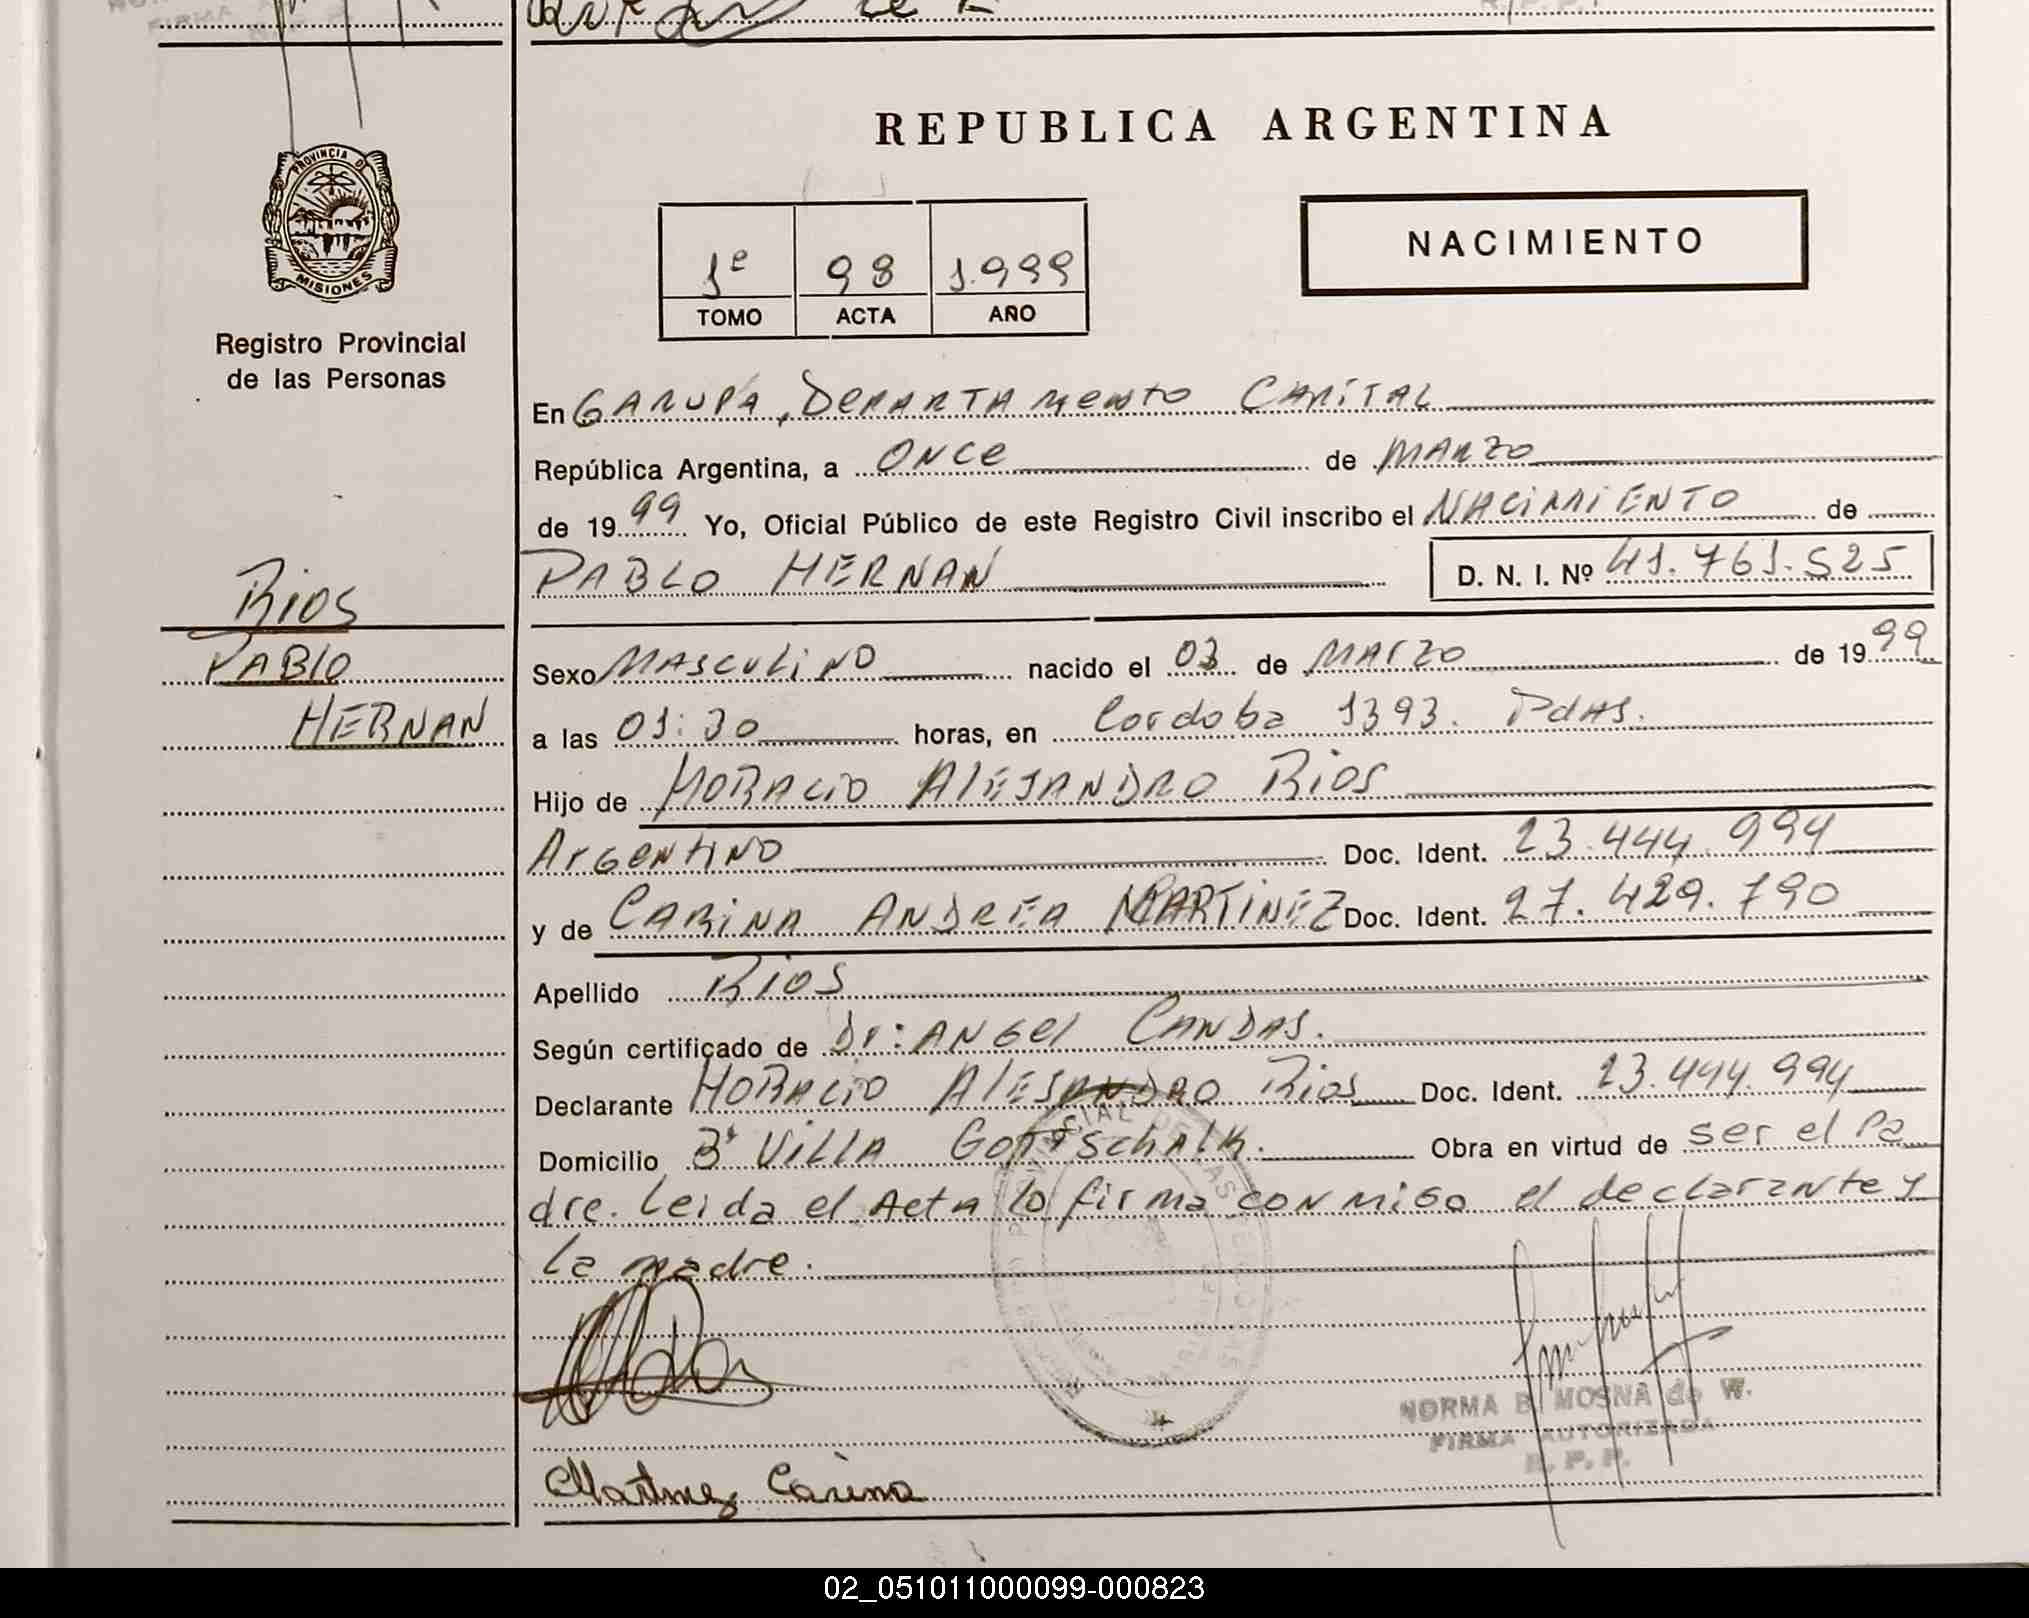 REPUBLICA ARGENTINA
PROVINCIA DE
MISIONES
Registro Provincial
de las Personas
1º 98 1.999
TOMO ACTA AÑO
NACIMIENTO
En GARUPA, DEPARTAMENTO CAPITAL
República Argentina, a ONCE de MARZO
de 1999 Yo, Oficial Público de este Registro Civil inscribo el NACIMIENTO de
PABLO HERNAN D. N. I. Nº 41.761.525
Rios
PABLO
HERNAN
Sexo MASCULINO nacido el 03 de MARZO de 1999
a las 01:30 horas, en Cordoba 1393. Pdas.
Hijo de HORACIO ALEJANDRO RIOS
Argentino Doc. Ident. 23.444.994
y de CARINA ANDREA MARTINEZ Doc. Ident. 27.429.790
Apellido RIOS
Según certificado de Dr: ANGEL CANDAS.
Declarante HORACIO ALEJANDRO Rios Doc. Ident. 23.444.994
Domicilio Bº VILLA GOTTSCHALK. Obra en virtud de ser el Pa
dre. Leida el Acta lo firma conmigo el declarante y
la madre.
NORMA B. MOSNA de W.
FIRMA AUTORIZADA
R. P. P.
Martinez Carina
02_051011000099-000823